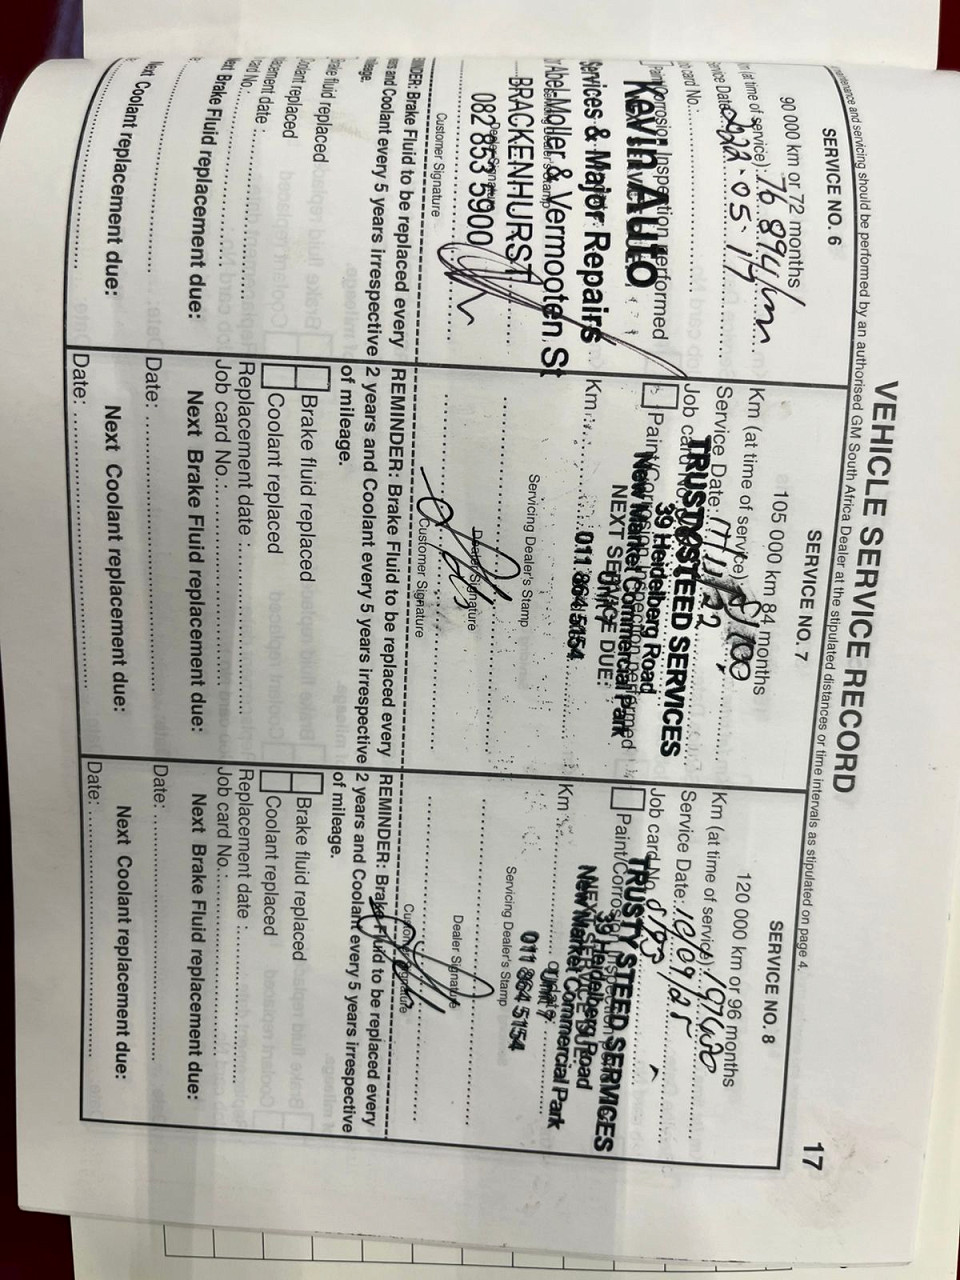 VEHICLE SERVICE RECORD
17
maintenance and servicing should be performed by an authorised GM South Africa Dealer at the stipulated distances or time intervals as stipulated on page 4.
SERVICE NO. 6
90 000 km or 72 months
(at time of service) 76 894 km
Service Date: 2022.05.14
Job card No.:
Paint/Corrosion Inspection performed
Kevin Auto
Services & Major Repairs
Abel Moller & Vermooten St
Servicing Dealer's Stamp
BRACKENHURST
Dealer Signature
082 853 5900
Customer Signature
REMINDER: Brake Fluid to be replaced every
years and Coolant every 5 years irrespective
mileage.
Brake fluid replaced
Coolant replaced
Replacement date :
Job card No.:
Next Brake Fluid replacement due:
Next Coolant replacement due:
SERVICE NO. 7
105 000 km 84 months
Km (at time of service)
Service Date:
Job card No.
TRUSTY STEED SERVICES
39 Heidelberg Road
Paint/Corrosion Inspection performed
New Market Commercial Park
NEXT SERVICE DUE:
Unit 7
Km
011 864 5154
Servicing Dealer's Stamp
Dealer Signature
Customer Signature
REMINDER: Brake Fluid to be replaced every
2 years and Coolant every 5 years irrespective
of mileage.
Brake fluid replaced
Coolant replaced
Replacement date :
Job card No.:
Next Brake Fluid replacement due:
Date:
Next Coolant replacement due:
Date:
SERVICE NO. 8
120 000 km or 96 months
Km (at time of service)
Service Date:
Job card No.
TRUSTY STEED SERVICES
Paint/Corrosion Inspection
39 Heidelberg Road
NEXT SERVICE DUE:
New Market Commercial Park
Km
or date:
Unit 7
011 864 5154
Servicing Dealer's Stamp
Dealer Signature
Customer Signature
REMINDER: Brake Fluid to be replaced every
2 years and Coolant every 5 years irrespective
of mileage.
Brake fluid replaced
Coolant replaced
Replacement date :
Job card No.:
Next Brake Fluid replacement due:
Date:
Next Coolant replacement due:
Date: